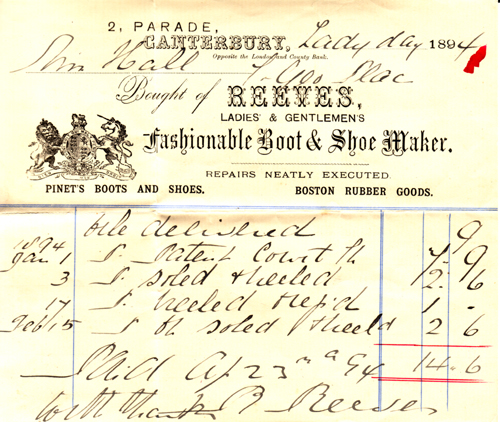 2, PARADE,
CANTERBURY, Lady day 1894
Opposite the London and County Bank.
Hall
Bought of REEVES,
LADIES' & GENTLEMEN'S
Fashionable Boot & Shoe Maker.
REPAIRS NEATLY EXECUTED
PINET'S BOOTS AND SHOES. BOSTON RUBBER GOODS.
delivered 9
1894
Jan 1 Patent Court 7. 9
3 soled & heeled 2. 6
17 heeled 1 -
Feb 15 soled & heeld 2 6
Paid Ap 23 94 14. 6
With thanks B Reeves